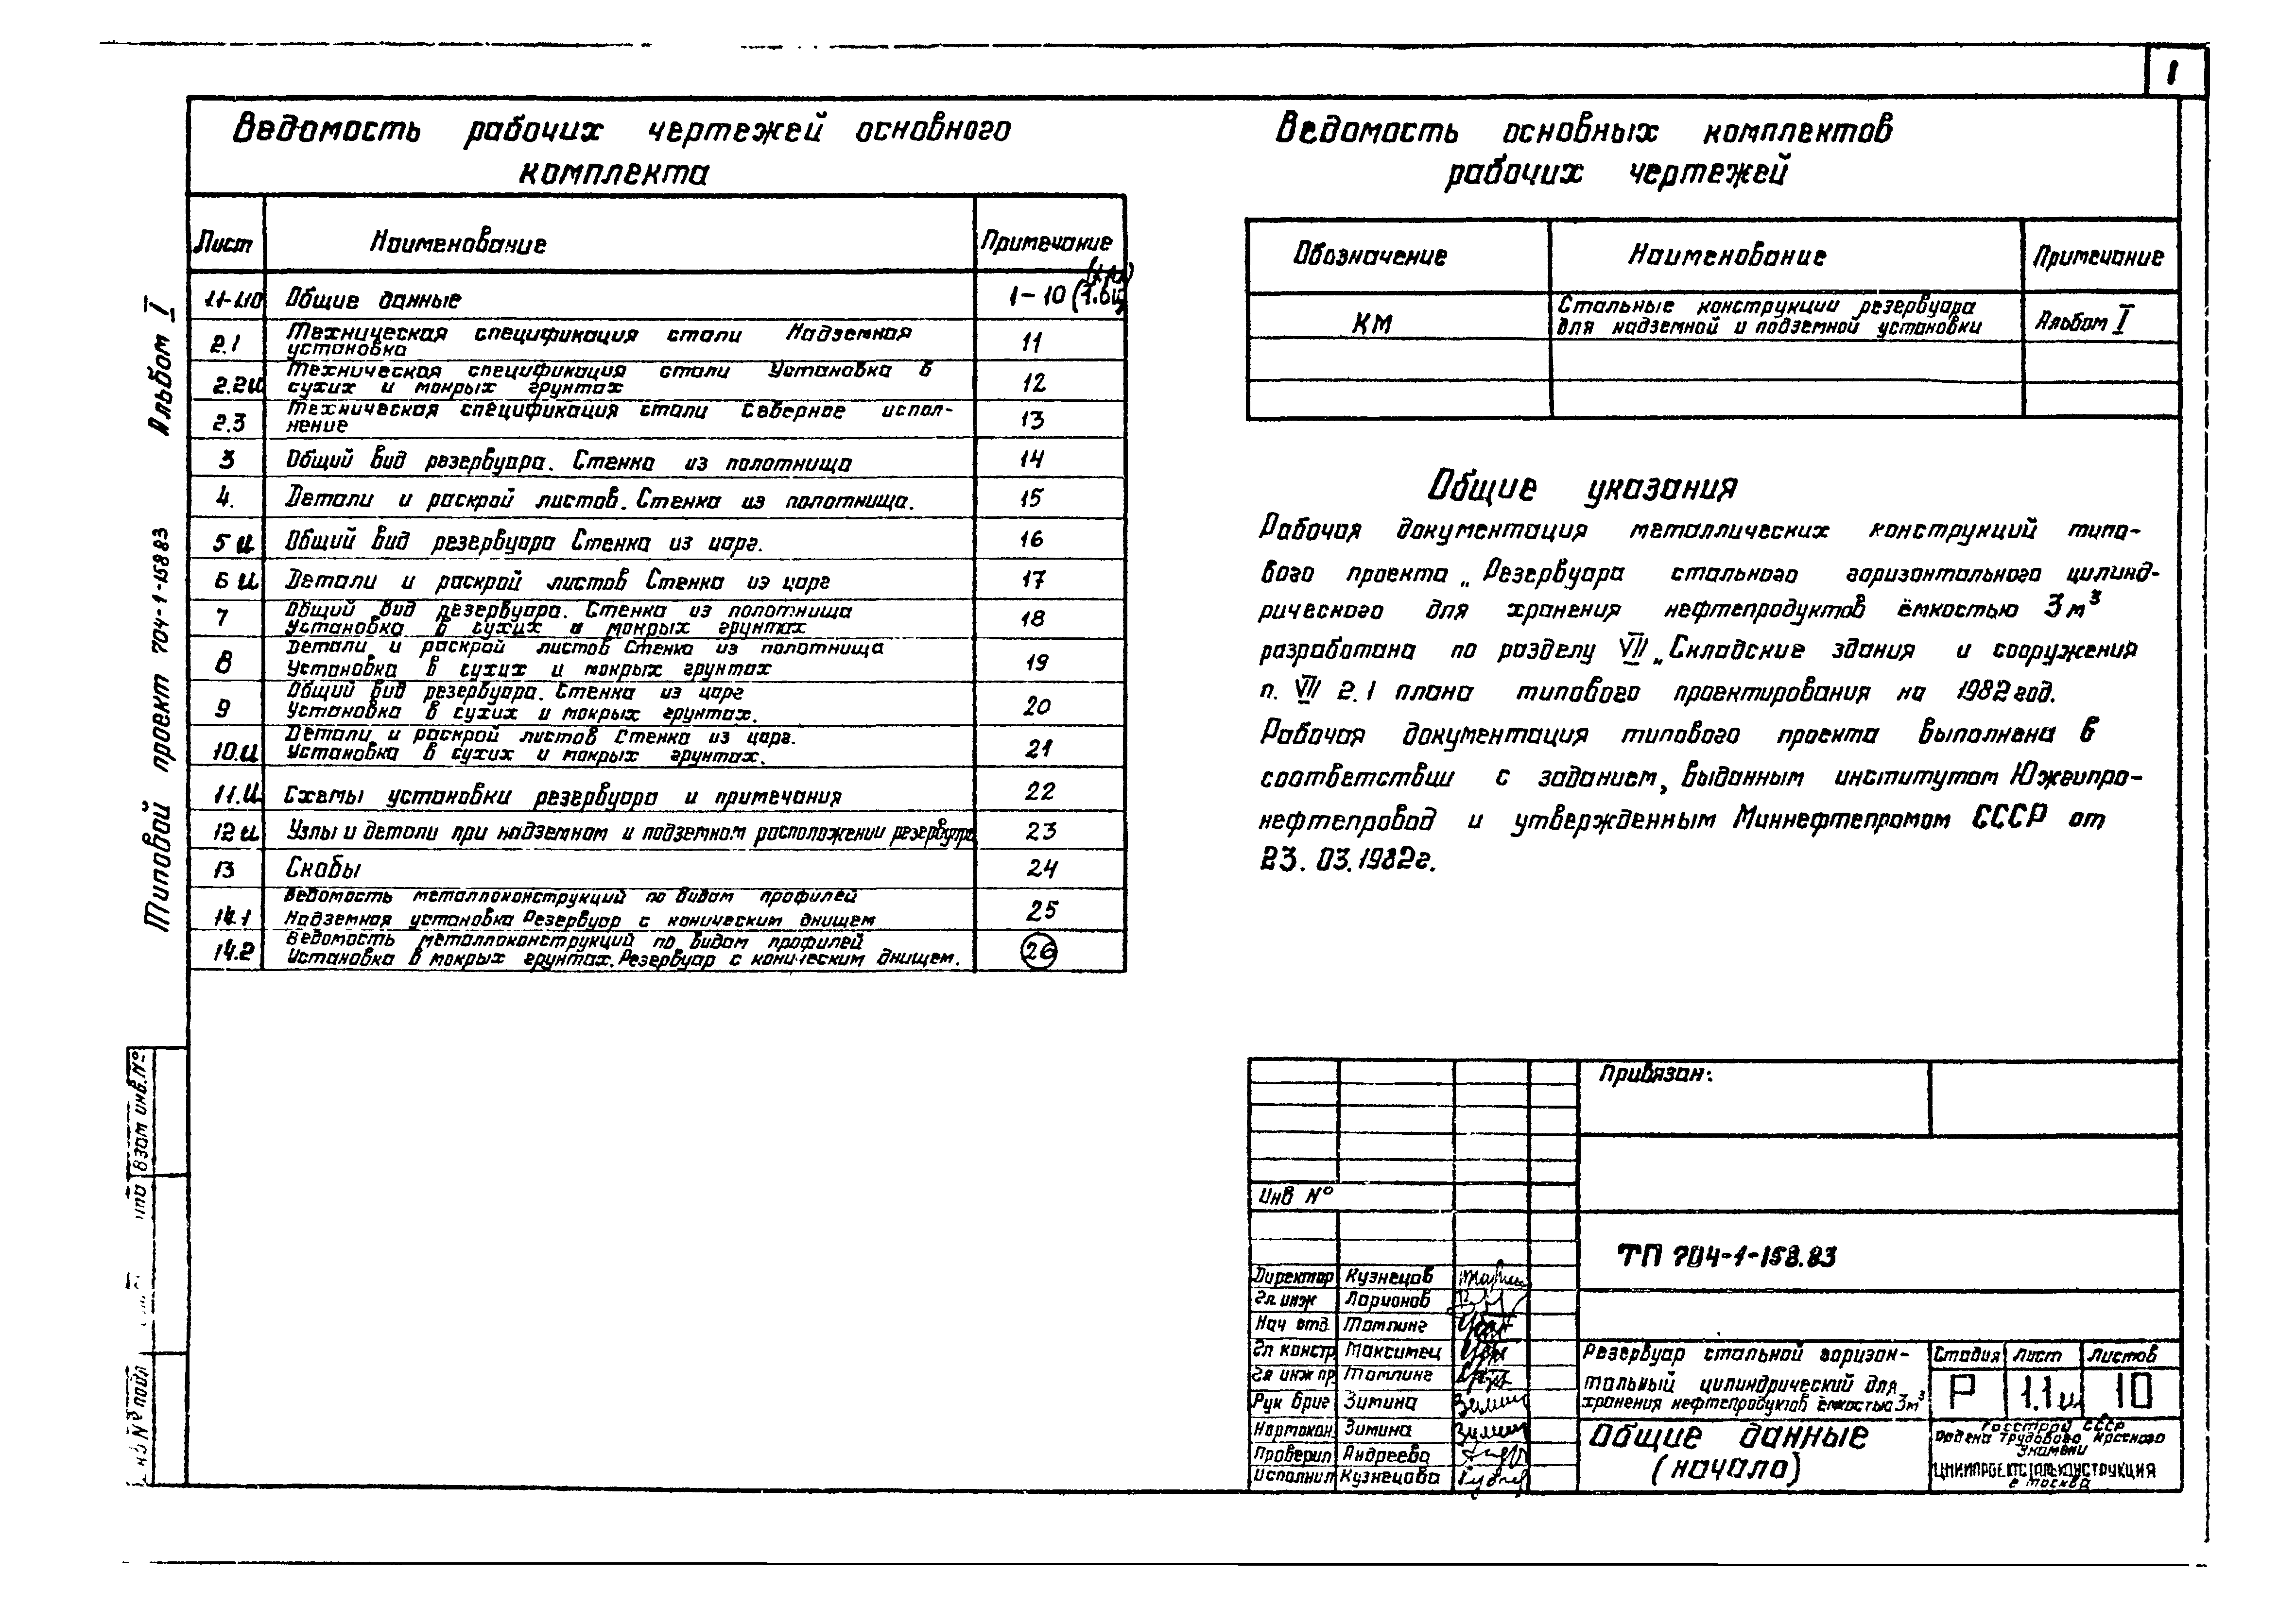 1
Ведомость рабочих чертежей основного
комплекта
Лист Наименование Примечание
1.1-1.10 Общие данные 1-10
2.1 Техническая спецификация стали Надземная
установка 11
2.2и Техническая спецификация стали Установка в
сухих и мокрых грунтах 12
2.3 Техническая спецификация стали Северное испол-
нение 13
3 Общий вид резервуара. Стенка из полотнища 14
4. Детали и раскрой листов. Стенка из полотнища. 15
5и Общий вид резервуара Стенка из царг. 16
6и Детали и раскрой листов Стенка из царг 17
7 Общий вид резервуара. Стенка из полотнища
Установка в сухих и мокрых грунтах 18
8 Детали и раскрой листов Стенка из полотнища
Установка в сухих и мокрых грунтах 19
9 Общий вид резервуара. Стенка из царг
Установка в сухих и мокрых грунтах. 20
10.и Детали и раскрой листов Стенка из царг.
Установка в сухих и мокрых грунтах. 21
11.и Схемы установки резервуара и примечания 22
12и Узлы и детали при надземном и подземном расположении резервуара 23
13 Скобы 24
14.1 Ведомость металлоконструкций по видам профилей
Надземная установка Резервуар с коническим днищем 25
14.2 Ведомость металлоконструкций по видам профилей
Установка в мокрых грунтах. Резервуар с коническим днищем. 26
Альбом I
Типовой проект 704-1-158 83
Взам инв. №
Инв № подл
Ведомость основных комплектов
рабочих чертежей
Обозначение Наименование Примечание
КМ Стальные конструкции резервуара
для надземной и подземной установки Альбом I
Общие указания
Рабочая документация металлических конструкций типо-
вого проекта „ Резервуара стального горизонтального цилинд-
рического для хранения нефтепродуктов ёмкостью 3м³
разработана по разделу VII „Складские здания и сооружения
п. VII 2.1 плана типового проектирования на 1982год.
Рабочая документация типового проекта выполнена в
соответствии с заданием, выданным институтом Южгипро-
нефтепровод и утвержденным Миннефтепромом СССР от
23. 03. 1982г.
Привязан:
Инв №
ТП 704-1-158.83
Директор Кузнецов
Гл инж Ларионов
Нач отд. Томлинг
Гл констр Максимец
Гл инж пр. Томлинг
Рук бриг Зимина
Нормокон. Зимина
Проверил Андреева
Исполнил Кузнецова
Резервуар стальной горизон-
тальный цилиндрический для
хранения нефтепродуктов ёмкостью 3м³
Стадия Лист Листов
Р 1.1и 10
Общие данные
(начало)
Госстрой СССР
Ордена Трудового Красного
Знамени
ЦНИИПРОЕКТСТАЛЬКОНСТРУКЦИЯ
г Москва